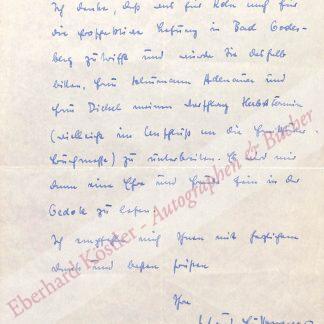 Ich denke, daß das für Köln auch für
die Lesung in Bad Godes-
berg zutrifft und würde Sie deshalb
bitten, Frau Schumann Adenauer und
Frau Dickel meinen Herbsttermin
(vielleicht im Anschluß an die
buchmesse) zu unterbreiten. Es wird mir
dann eine Ehre und Freude sein in der
Gedok zu lesen.
Ich empfehle mich Ihnen mit herzlichem
Dank und besten Grüßen
Ihre
Eberhard Köstler - Autographen & Bücher